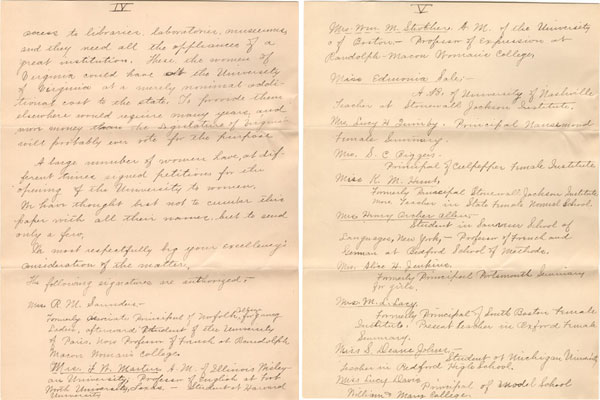 IV
access to libraries, laboratories, museums,
and they need all the appliances of a
great institution. Here the women of
Virginia could have at the University
of Virginia at a merely nominal addi-
tional cost to the state. To provide them
elsewhere would require many years and
more money than the legislature of Virginia
will probably ever vote for the purpose.
A large number of women have, at dif-
ferent times signed petitions for the
opening of the University, to women.
We have thought best not to cumber this
paper with all their names, but to send
only a few.
We most respectfully beg your excellency's
consideration of the matter.
The following signatures are authorized:-
Mrs R. M. Saunders-
Formerly Associate Principal of Norfolk for young
Ladies, afterward Student of the University
of Paris. Now Professor of French at Randolph
Macon Woman's College.
Mrs. F. W. Martin A.M. of Illinois Wesley-
an University, Professor of English at Fort
Worth University, Texas. Student at Harvard
University
V
Mrs. Wm. M. Strother A.M. of the University
of Boston - Professor of Expression at
Randolph-Macon Woman's College.
Miss Edmonia Sale-
A.B. of University of Nashville
Teacher at Stonewall Jackson Institute.
Mrs Lucy H. Quimby. Principal Nansemond
Female Seminary.
Mrs. S. C. Biggers-
Principal of Culpepper Female Institute
Miss K. M. Hunt,
Formerly Principal Stonewall Jackson Institute
now Teacher in State Female Normal School.
Mrs. Henry Archer
Student in Sauveur School of
Languages, New York, - Professor of French and
German at Bedford School of Methods.
Mrs. Alice H. Jenkins,
Formerly Principal Portsmouth Seminary
for girls.
Mrs M. L. Lacy.
Formerly Principal of South Boston Female
Institute. Present teacher in Oxford Female
Seminary.
Miss S. Deane
Student at Michigan
Teacher in Bedford High School.
Miss Lucy Davis
Principal of Model School
William & Mary College.